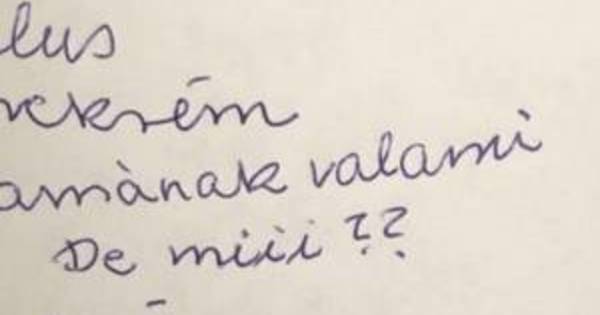 lus
rckrém
amának valami
De miii ??